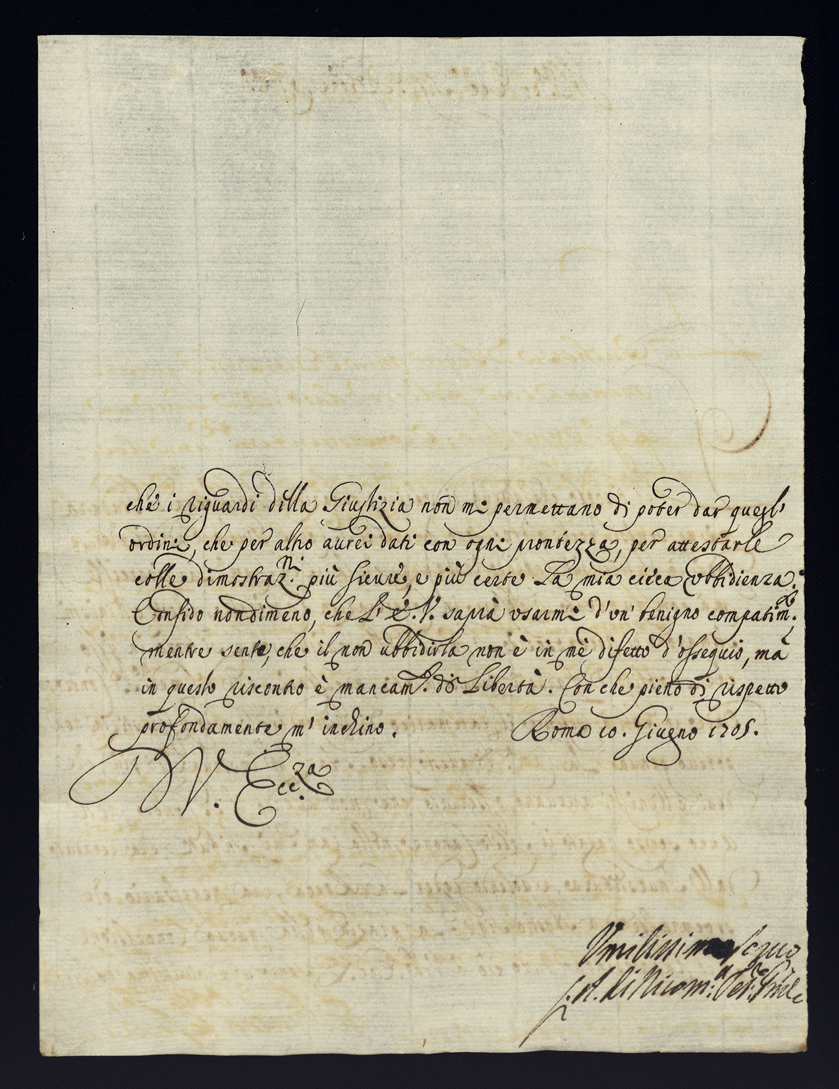 che i riguardi della Giustizia non mi permettano di poter dar quegl'
ordini, che per altro aurei dati con ogni prontezza, per attestarle
colle dimostraz.ni più sicure, e più certe la mia cieca vbbidienza.
Confido nondimeno, che l'E. V. saprà vsarmi d'un' benigno compatim.to
mentre sente, che il non ubbidirla non è in mè difetto d'ossequio, mà
in questo riscontro è mancam.to di Libertà. Con che pieno di rispetto
profondamente m' inchino. Roma 10. Giugno 1705.
D V. Ecc.za
Vmilissimo